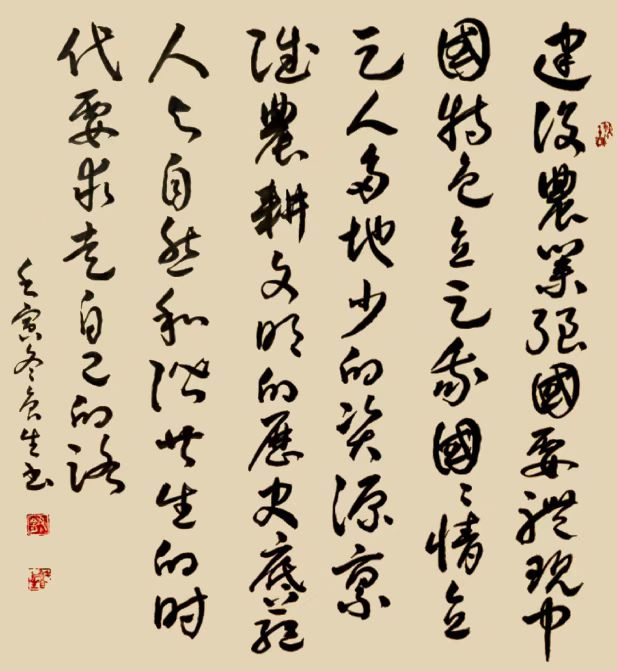 建设農業强國要體现中
國特色立足我國〻情立
足人多地少的资源禀
赋農耕文明的歷史底蕴
人与自然和谐共生的时
代要求走自己的路
壬寅冬生书